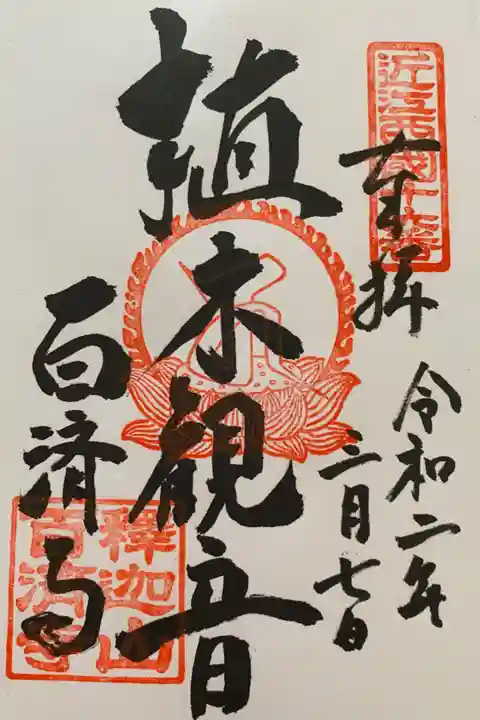 近江西國十六番
奉拝
令和二年
三月七日
植木觀音
百済寺
釋迦山
百済寺